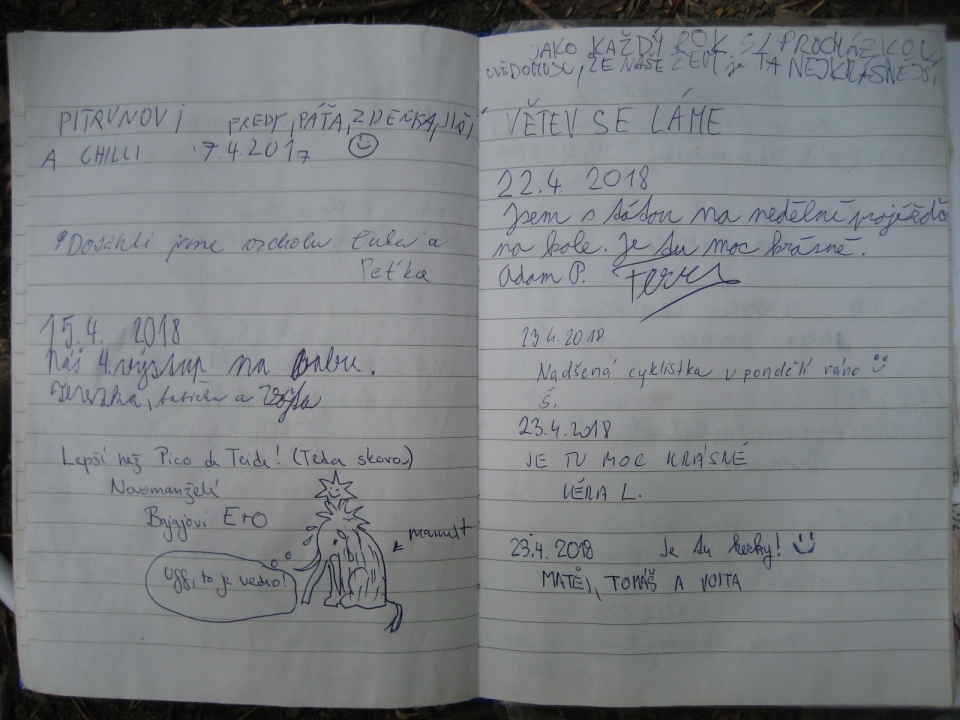 PITRUNOVI FREDY, PÁŤA, ZDEŇKA, JIŘÍ
A CHILLI 7.4.2017
Dosáhli jsme vrcholu Ťula a
Peťka
15.4. 2018
Náš 4. výstup na babu.
Terezka, babička a Vojta
Lepší než Pico de Teide! (Teda skoro)
Novomanželé
Bajajovi E+O
mamut
Uff, to je vedro!
JAKO KAŽDÝ ROK SI PROCHÁZKOU
UVĚDOMUJU, ŽE NAŠE ZEMĚ je TA NEJKRÁSNĚJŠÍ,
VĚTEV SE LÁME
22.4. 2018
Jsem s tátou na nedělní projížďce
na kole. Je tu moc krásně.
Adam P.
23.4.2018
Nadšená cyklistka v pondělí ráno
Š.
23.4.2018
JE TU MOC KRÁSNĚ
VĚRA L.
23.4. 2018 Je tu hezky!
MATĚJ, TOMÁŠ A VOJTA